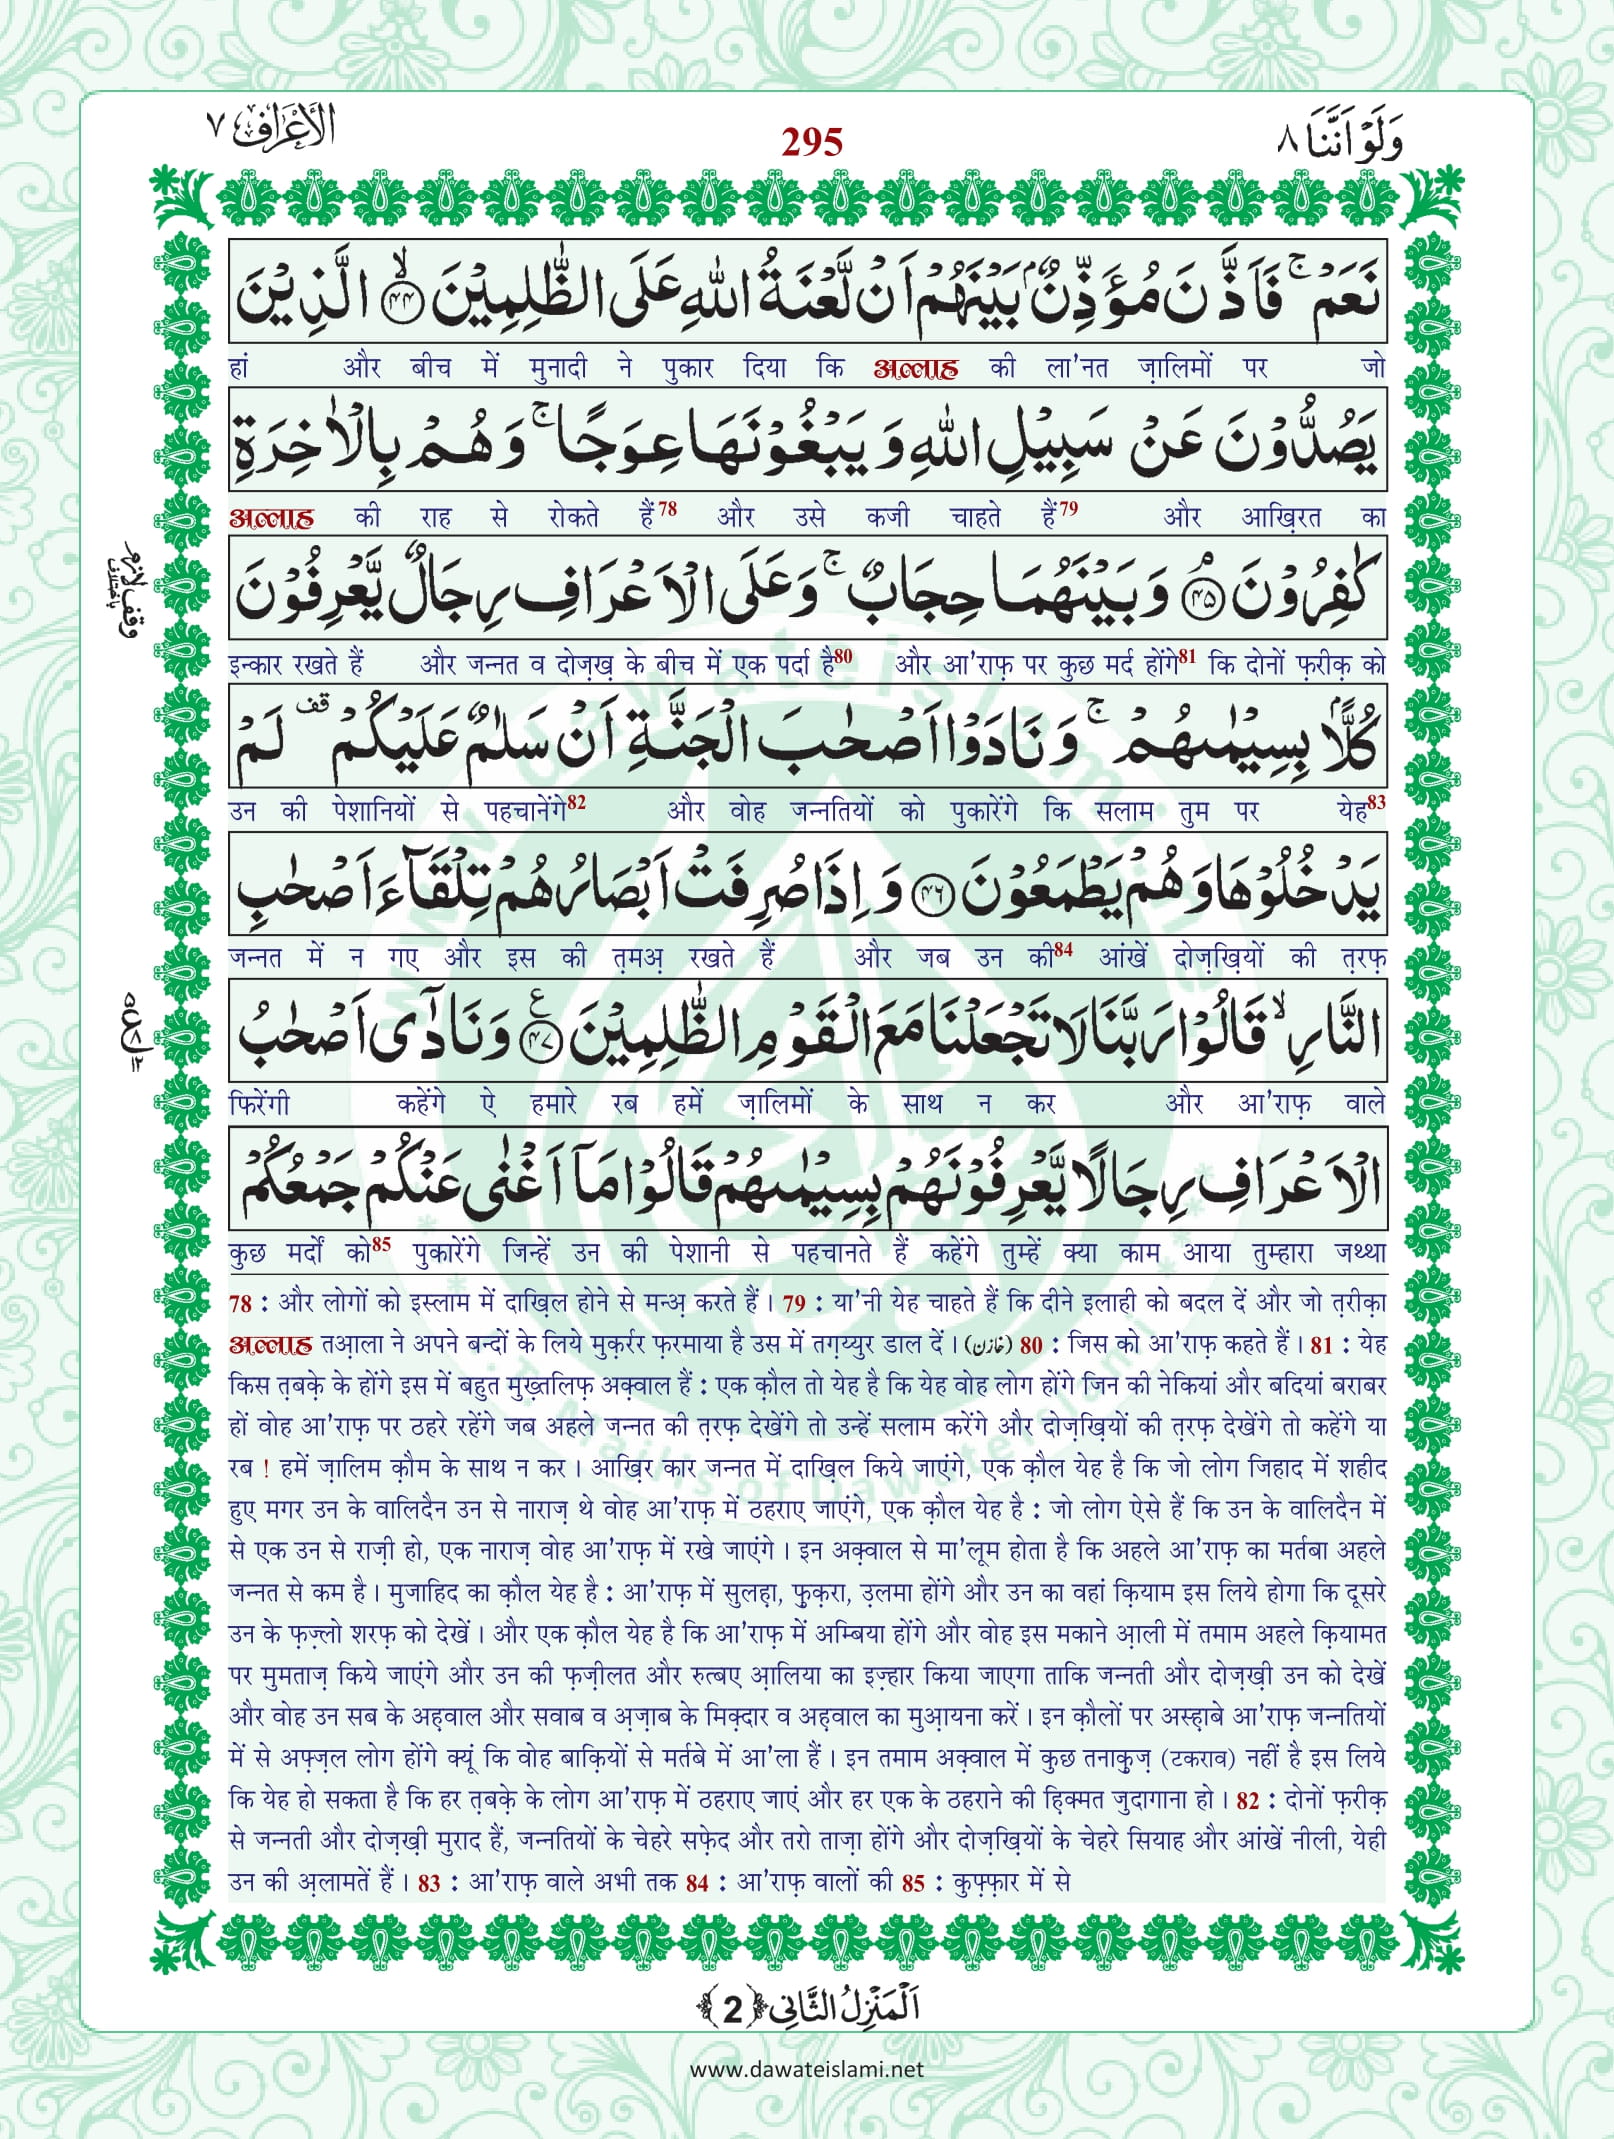 وَلَوْ اَنَّنَا ٨
295
الْاَعْرَاف ٧
نَعَمْ ۚ فَاَذَّنَ مُؤَذِّنٌۢ بَیْنَهُمْ اَنْ لَّعْنَةُ اللّٰهِ عَلَى الظّٰلِمِیْنَ ۙ﴿۴۴﴾ الَّذِیْنَ
हां और बीच में मुनादी ने पुकार दिया कि अल्लाह की ला'नत ज़ालिमों पर जो
یَصُدُّوْنَ عَنْ سَبِیْلِ اللّٰهِ وَ یَبْغُوْنَهَا عِوَجًا ۚ وَ هُمْ بِالْاٰخِرَةِ
अल्लाह की राह से रोकते हैं78 और उसे कजी चाहते हैं79 और आख़िरत का
كٰفِرُوْنَ ۘ﴿۴۵﴾ وَ بَیْنَهُمَا حِجَابٌ ۚ وَ عَلَى الْاَعْرَافِ رِجَالٌ یَّعْرِفُوْنَ
وقف لازم
باختلاف
इन्कार रखते हैं और जन्नत व दोज़ख़ के बीच में एक पर्दा है80 और आ'राफ़ पर कुछ मर्द होंगे81 कि दोनों फ़रीक़ को
كُلًّۢا بِسِیْمٰىهُمْ ۚ وَ نَادَوْا اَصْحٰبَ الْجَنَّةِ اَنْ سَلٰمٌ عَلَیْكُمْ ۫ لَمْ
उन की पेशानियों से पहचानेंगे82 और वोह जन्नतियों को पुकारेंगे कि सलाम तुम पर येह83
یَدْخُلُوْهَا وَ هُمْ یَطْمَعُوْنَ ﴿۴۶﴾ وَ اِذَا صُرِفَتْ اَبْصَارُهُمْ تِلْقَآءَ اَصْحٰبِ
जन्नत में न गए और इस की त़मअ़ रखते हैं और जब उन की84 आंखें दोज़ख़ियों की त़रफ़
النَّارِ ۙ قَالُوْا رَبَّنَا لَا تَجْعَلْنَا مَعَ الْقَوْمِ الظّٰلِمِیْنَ ﴿۴۷﴾ وَ نَادٰۤى اَصْحٰبُ
फिरेंगी कहेंगे ऐ हमारे रब हमें ज़ालिमों के साथ न कर और आ'राफ़ वाले
الْاَعْرَافِ رِجَالًا یَّعْرِفُوْنَهُمْ بِسِیْمٰىهُمْ قَالُوْا مَاۤ اَغْنٰى عَنْكُمْ جَمْعُكُمْ
कुछ मर्दों को85 पुकारेंगे जिन्हें उन की पेशानी से पहचानते हैं कहेंगे तुम्हें क्या काम आया तुम्हारा जथ्था
78 : और लोगों को इस्लाम में दाख़िल होने से मन्अ़ करते हैं। 79 : या'नी येह चाहते हैं कि दीने इलाही को बदल दें और जो त़रीक़ा
अल्लाह तआ़ला ने अपने बन्दों के लिये मुक़र्रर फ़रमाया है उस में तग़य्युर डाल दें। (خازن) 80 : जिस को आ'राफ़ कहते हैं। 81 : येह
किस त़बक़े के होंगे इस में बहुत मुख़्तलिफ़ अक़्वाल हैं : एक क़ौल तो येह है कि येह वोह लोग होंगे जिन की नेकियां और बदियां बराबर
हों वोह आ'राफ़ पर ठहरे रहेंगे जब अहले जन्नत की त़रफ़ देखेंगे तो उन्हें सलाम करेंगे और दोज़ख़ियों की त़रफ़ देखेंगे तो कहेंगे या
रब ! हमें ज़ालिम क़ौम के साथ न कर। आख़िर कार जन्नत में दाख़िल किये जाएंगे, एक क़ौल येह है कि जो लोग जिहाद में शहीद
हुए मगर उन के वालिदैन उन से नाराज़ थे वोह आ'राफ़ में ठहराए जाएंगे, एक क़ौल येह है : जो लोग ऐसे हैं कि उन के वालिदैन में
से एक उन से राज़ी हो, एक नाराज़ वोह आ'राफ़ में रखे जाएंगे। इन अक़्वाल से मा'लूम होता है कि अहले आ'राफ़ का मर्तबा अहले
जन्नत से कम है। मुजाहिद का क़ौल येह है : आ'राफ़ में सुलह़ा, फ़ुक़रा, उ़लमा होंगे और उन का वहां क़ियाम इस लिये होगा कि दूसरे
उन के फ़ज़्लो शरफ़ को देखें। और एक क़ौल येह है कि आ'राफ़ में अम्बिया होंगे और वोह इस मकाने आ़ली में तमाम अहले क़ियामत
पर मुमताज़ किये जाएंगे और उन की फ़ज़ीलत और रुत्बए आ़लिया का इज़्हार किया जाएगा ताकि जन्नती और दोज़ख़ी उन को देखें
और वोह उन सब के अह़वाल और सवाब व अ़ज़ाब के मिक़्दार व अह़वाल का मुआ़यना करें। इन क़ौलों पर अस्ह़ाबे आ'राफ़ जन्नतियों
में से अफ़्ज़ल लोग होंगे क्यूं कि वोह बाक़ियों से मर्तबे में आ'ला हैं। इन तमाम अक़्वाल में कुछ तनाक़ुज़ (टकराव) नहीं है इस लिये
कि येह हो सकता है कि हर त़बक़े के लोग आ'राफ़ में ठहराए जाएं और हर एक के ठहराने की ह़िक्मत जुदागाना हो। 82 : दोनों फ़रीक़
से जन्नती और दोज़ख़ी मुराद हैं, जन्नतियों के चेहरे सफ़ेद और तरो ताज़ा होंगे और दोज़ख़ियों के चेहरे सियाह और आंखें नीली, येही
उन की अ़लामतें हैं। 83 : आ'राफ़ वाले अभी तक 84 : आ'राफ़ वालों की 85 : कुफ़्फ़ार में से
اَلْمَنْزِلُ الثَّانِی ﴿2﴾
www.dawateislami.net